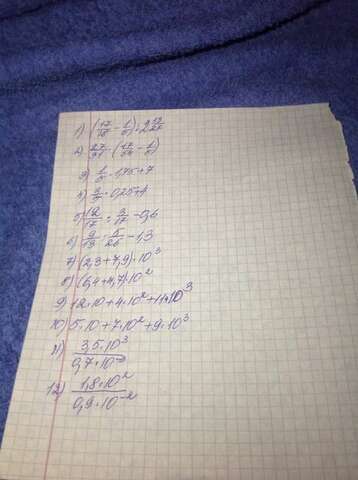 1) (17/18 - 1/9) : 2 13/27
2) 27/31 · (17/54 - 1/9)
3) 1/5 · 1,75 + 7
4) 2/7 · 0,25 + 4
5) 12/17 : 3/17 - 0,6
6) 9/13 : 5/26 - 1,3
7) (2,3+7,9)·10³
8) (6,4+4,7)·10²
9) 12·10+4·10²+11·10³
10) 5·10+7·10²+9·10³
11) 3,5·10³
0,7·10⁻³
12) 1,8·10²
0,9·10⁻²